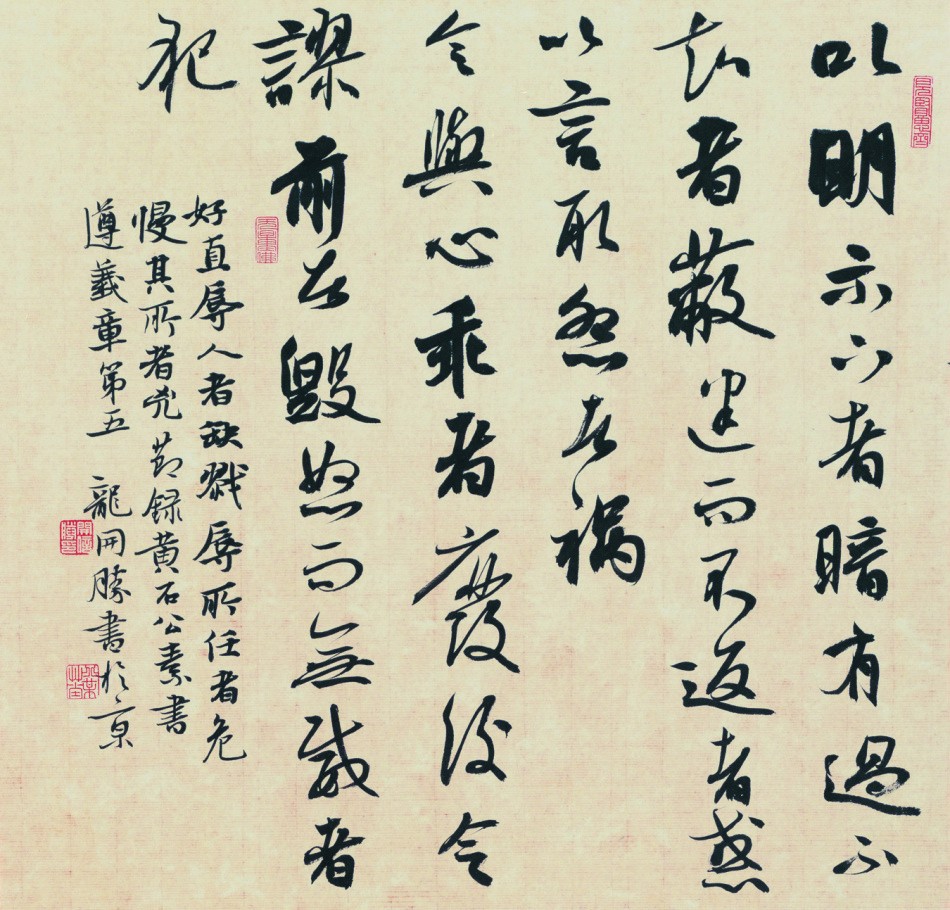 以明示下者暗有過不
知者蔽迷而不返者惑
以言取怨者禍
令與心乖者廢後令
謬前者毀怒而無威者
犯
好直辱人者殃戮辱所任者危
慢其所者兇節録黃石公素書
遵義章第五 龍開勝書於京
見賢思齊